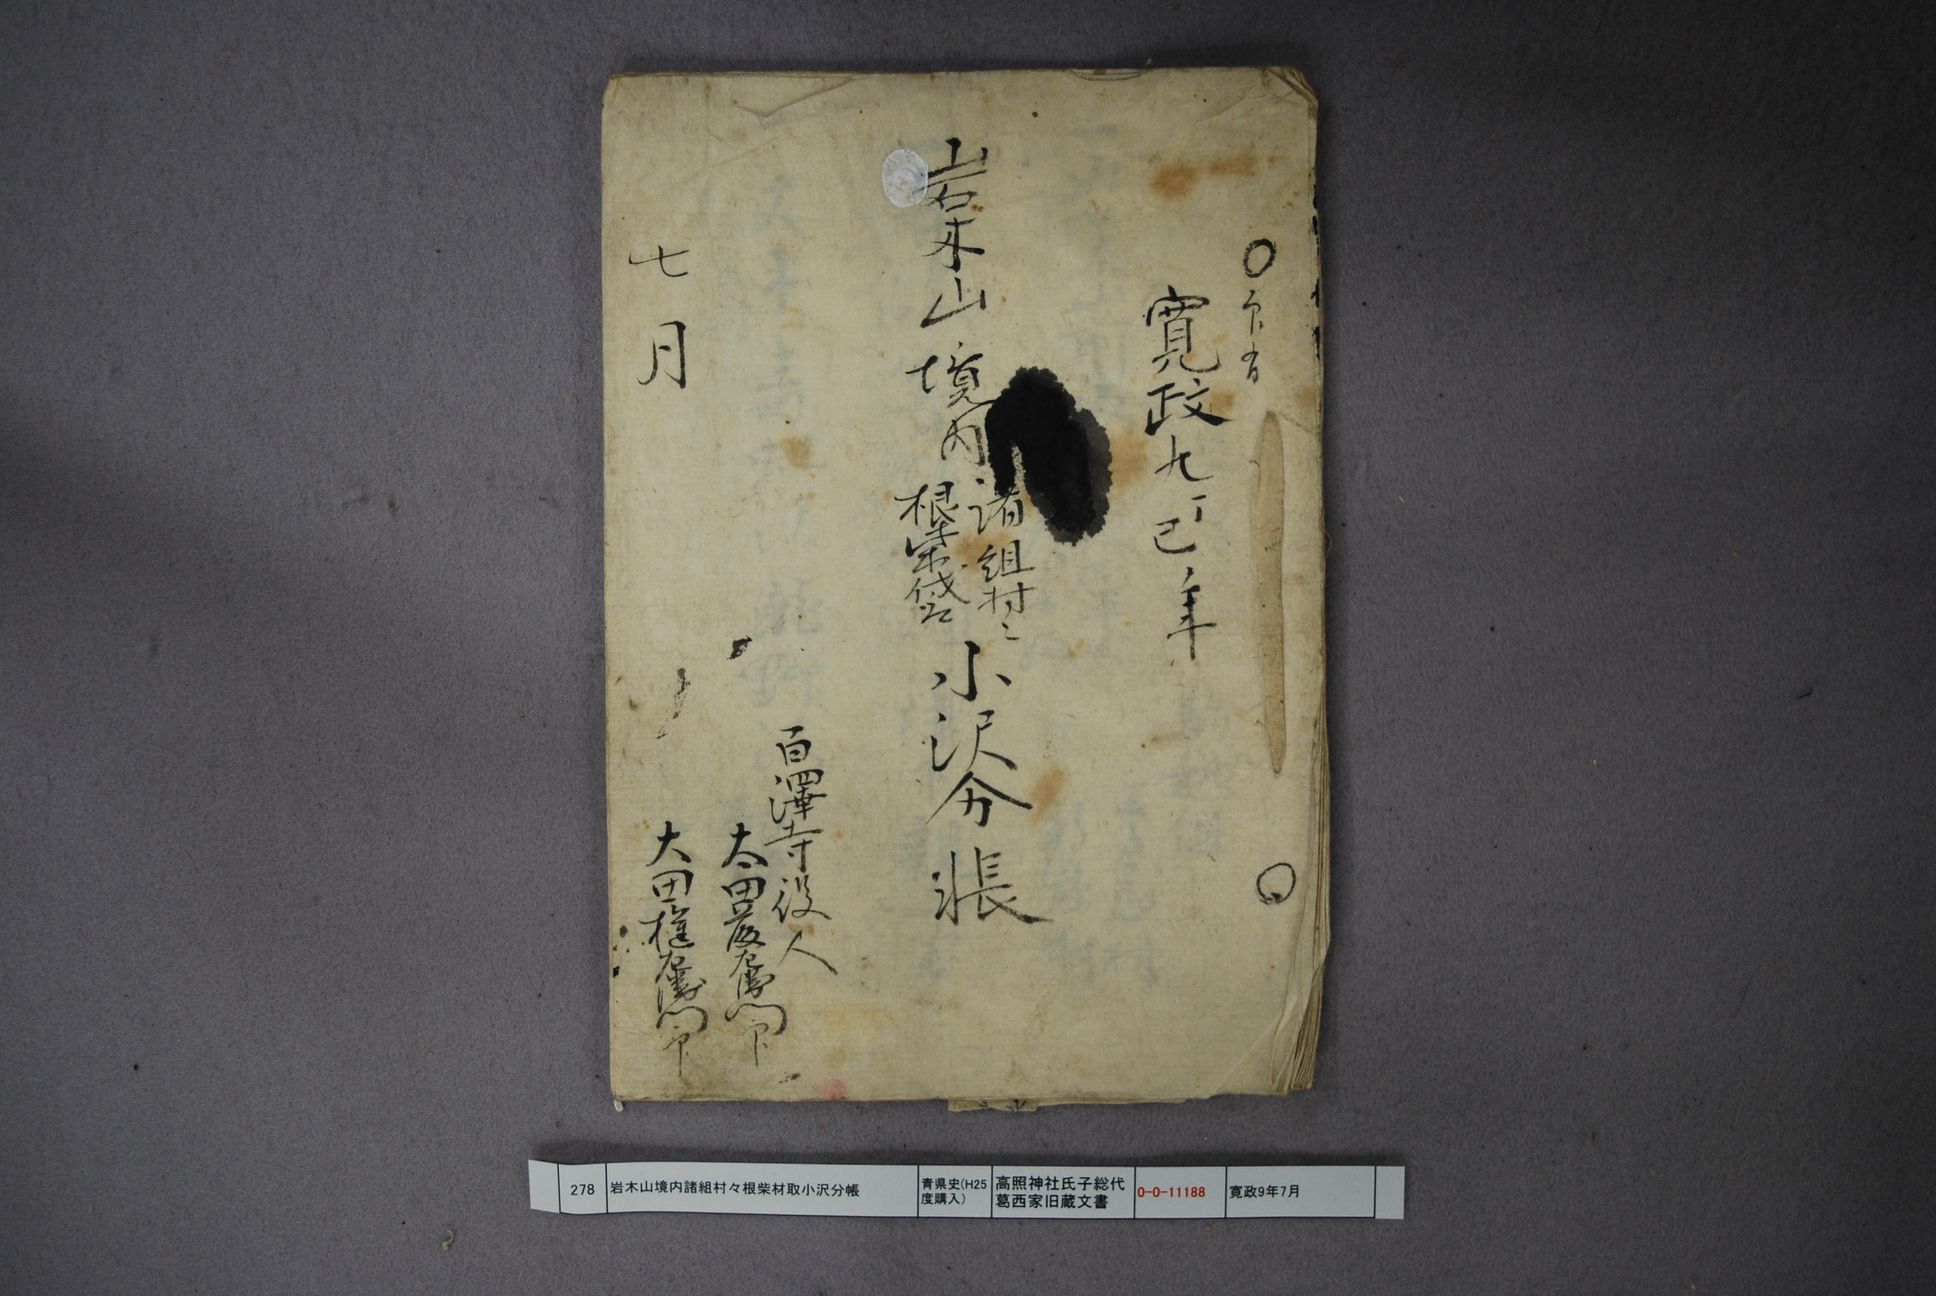 寛政九丁巳年
岩木山境内
諸組村々
根柴
小沢分帳
七月
百澤寺役人
太田
大田権左衛門
278
岩木山境内諸組村々根柴材取小沢分帳
青県史(H25
度購入)
高照神社氏子総代
葛西家旧蔵文書
0-0-11188
寛政9年7月